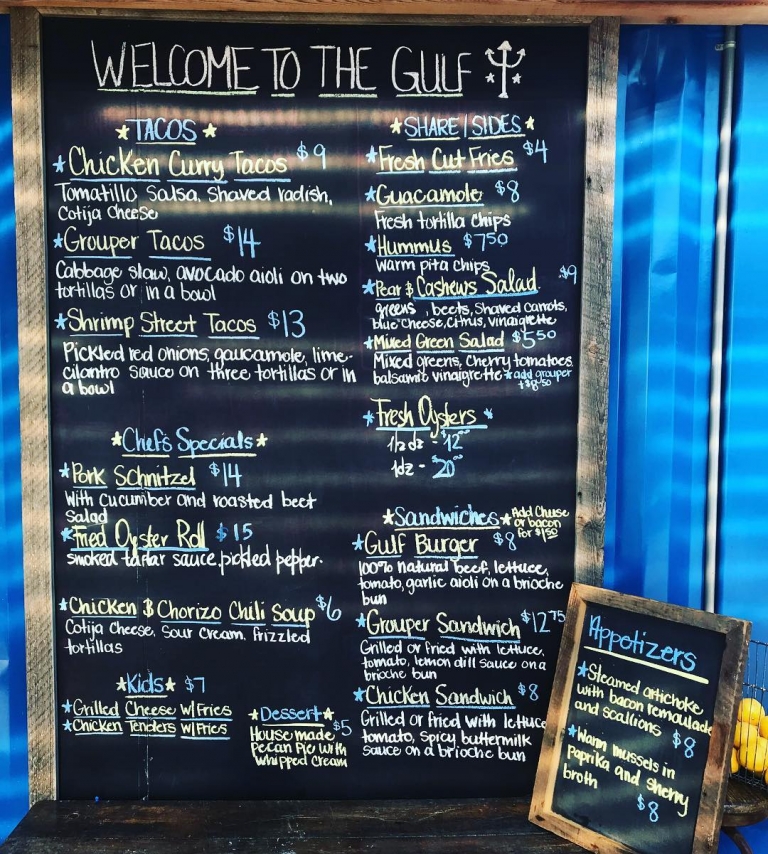 WELCOME TO THE GULF
TACOS
Chicken Curry Tacos $9
Tomatillo Salsa, Shaved radish,
Cotija Cheese
Grouper Tacos $14
Cabbage slaw, avocado aioli on two
tortillas or in a bowl
Shrimp Street Tacos $13
Pickled red onions, gaucamole, lime-
cilantro sauce on three tortillas or in
a bowl
Chef's Specials
Pork Schnitzel $14
with cucumber and roasted beet
Salad
Fried Oyster Roll $15
smoked tartar sauce, pickled pepper.
Chicken & Chorizo Chili Soup $6
Cotija Cheese, Sour Cream, Frizzled
tortillas
Kids $7
Grilled Cheese w/Fries
Chicken Tenders w/Fries
Dessert
House made $5
Pecan Pie with
whipped Cream
SHARE | SIDES
Fresh Cut Fries $4
Guacamole $8
Fresh tortilla chips
Hummus $7.50
warm pita chips
Pear & Cashews Salad $9
greens, beets, shaved carrots,
blue cheese, citrus, vinaigrette
Mixed Green Salad $5.50
Mixed greens, cherry tomatoes
balsamic vinaigrette *add grouper
+$8.50
Fresh Oysters
1/2 dz - $12.00
1dz - $20.00
Sandwiches Add Cheese
or bacon
for $1.50
Gulf Burger $8
100% natural beef, lettuce,
tomato, garlic aioli on a brioche
bun
Grouper Sandwich $12.75
Grilled or fried with lettuce,
tomato, lemon dill sauce on a
brioche bun
Chicken Sandwich $8
Grilled or fried with lettuce
tomato, spicy buttermilk
sauce on a brioche bun
Appetizers
Steamed artichoke
with bacon remoulade
and scallions $8
Warm mussels in
paprika and sherry
broth
$8